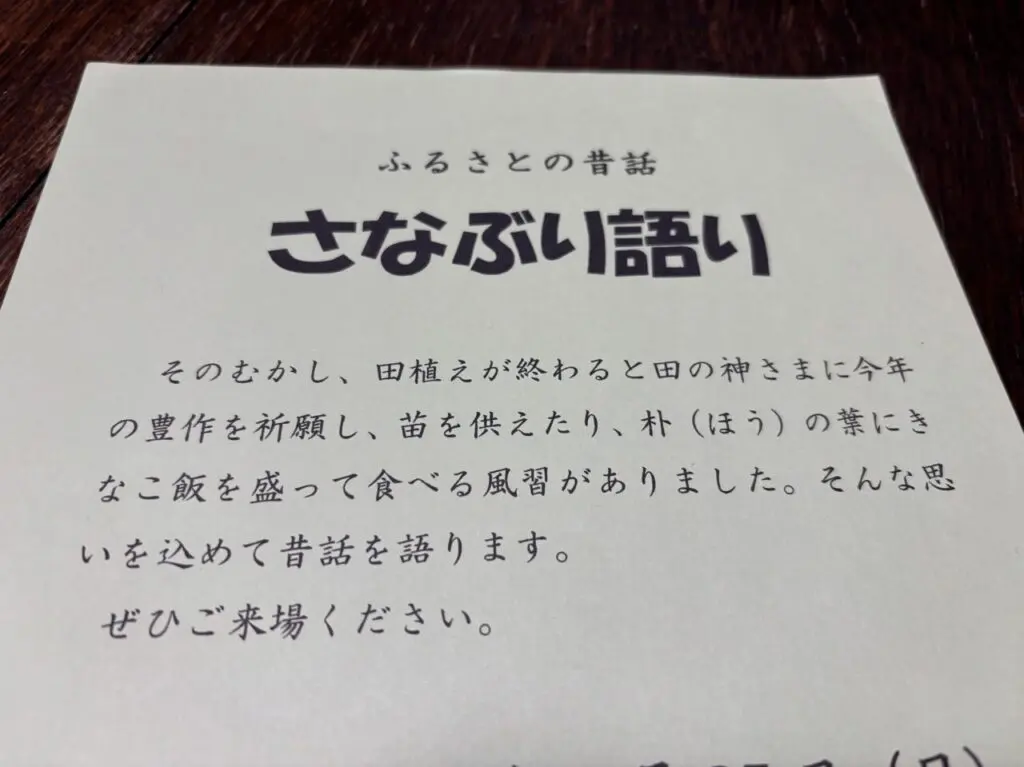 ふるさとの昔話
さなぶり語り
そのむかし、田植えが終わると田の神さまに今年
の豊作を祈願し、苗を供えたり、朴（ほう）の葉にき
なこ飯を盛って食べる風習がありました。そんな思
いを込めて昔話を語ります。
ぜひご来場ください。